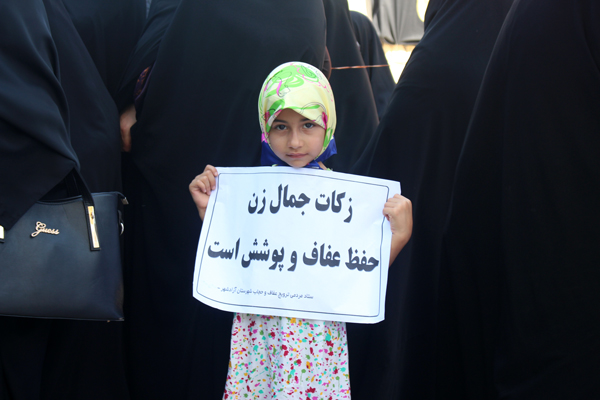 Guess
زکات جمال زن
حفظ عفاف و پوشش است
ستاد مردمی ترویج عفاف و حجاب شهرستان آرادشهر